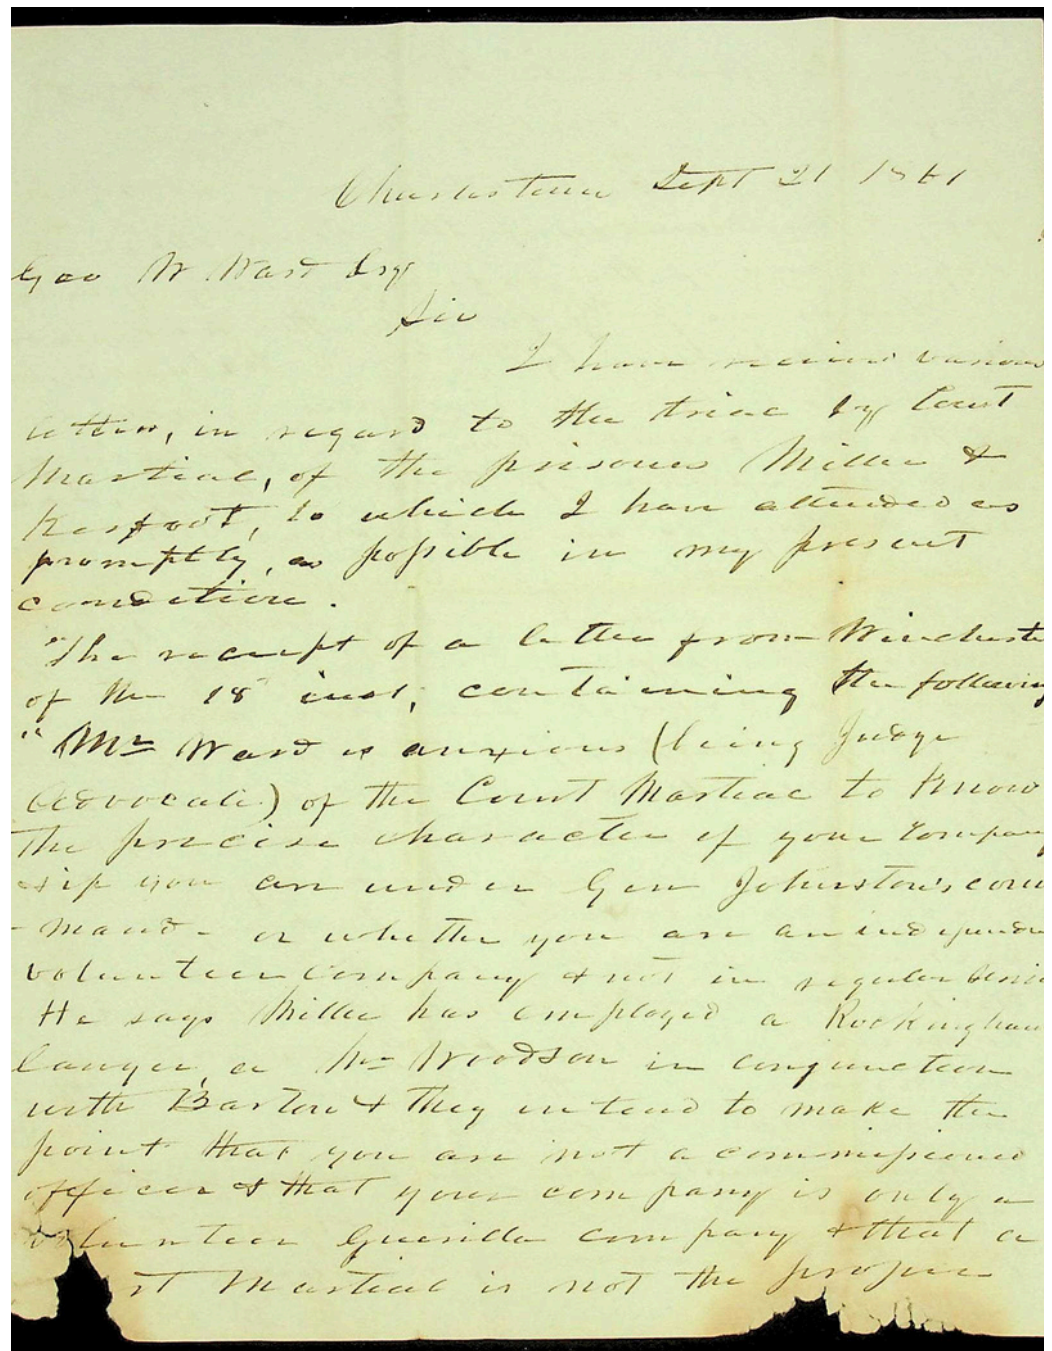 Charlestown Sept 21 1861
Geo W Ward Esq
Sir
I have received various
letters, in regard to the trial by Court
Martial, of the prisoners Miller &
Kerfoot, to which I have attended as
promptly, as possible in my present
condition.
The receipt of a letter from Wincheste
of the 18th inst, containing the following
"Mr Ward is anxious (being Judge
Advocate) of the Court Martial to know
the precise character of your Compan
& if you are under Gen Johnston's com
-mand - or whether you are an independen
volunteer company & not in regular
He says Miller has employed a Rockingham
lawyer, a Mr Woodson in conjunction
with Barton & they intend to make the
point that you are not a commissioned
officer & that your company is only a
volunteer Guerilla company & that a
rt Martial is not the proper